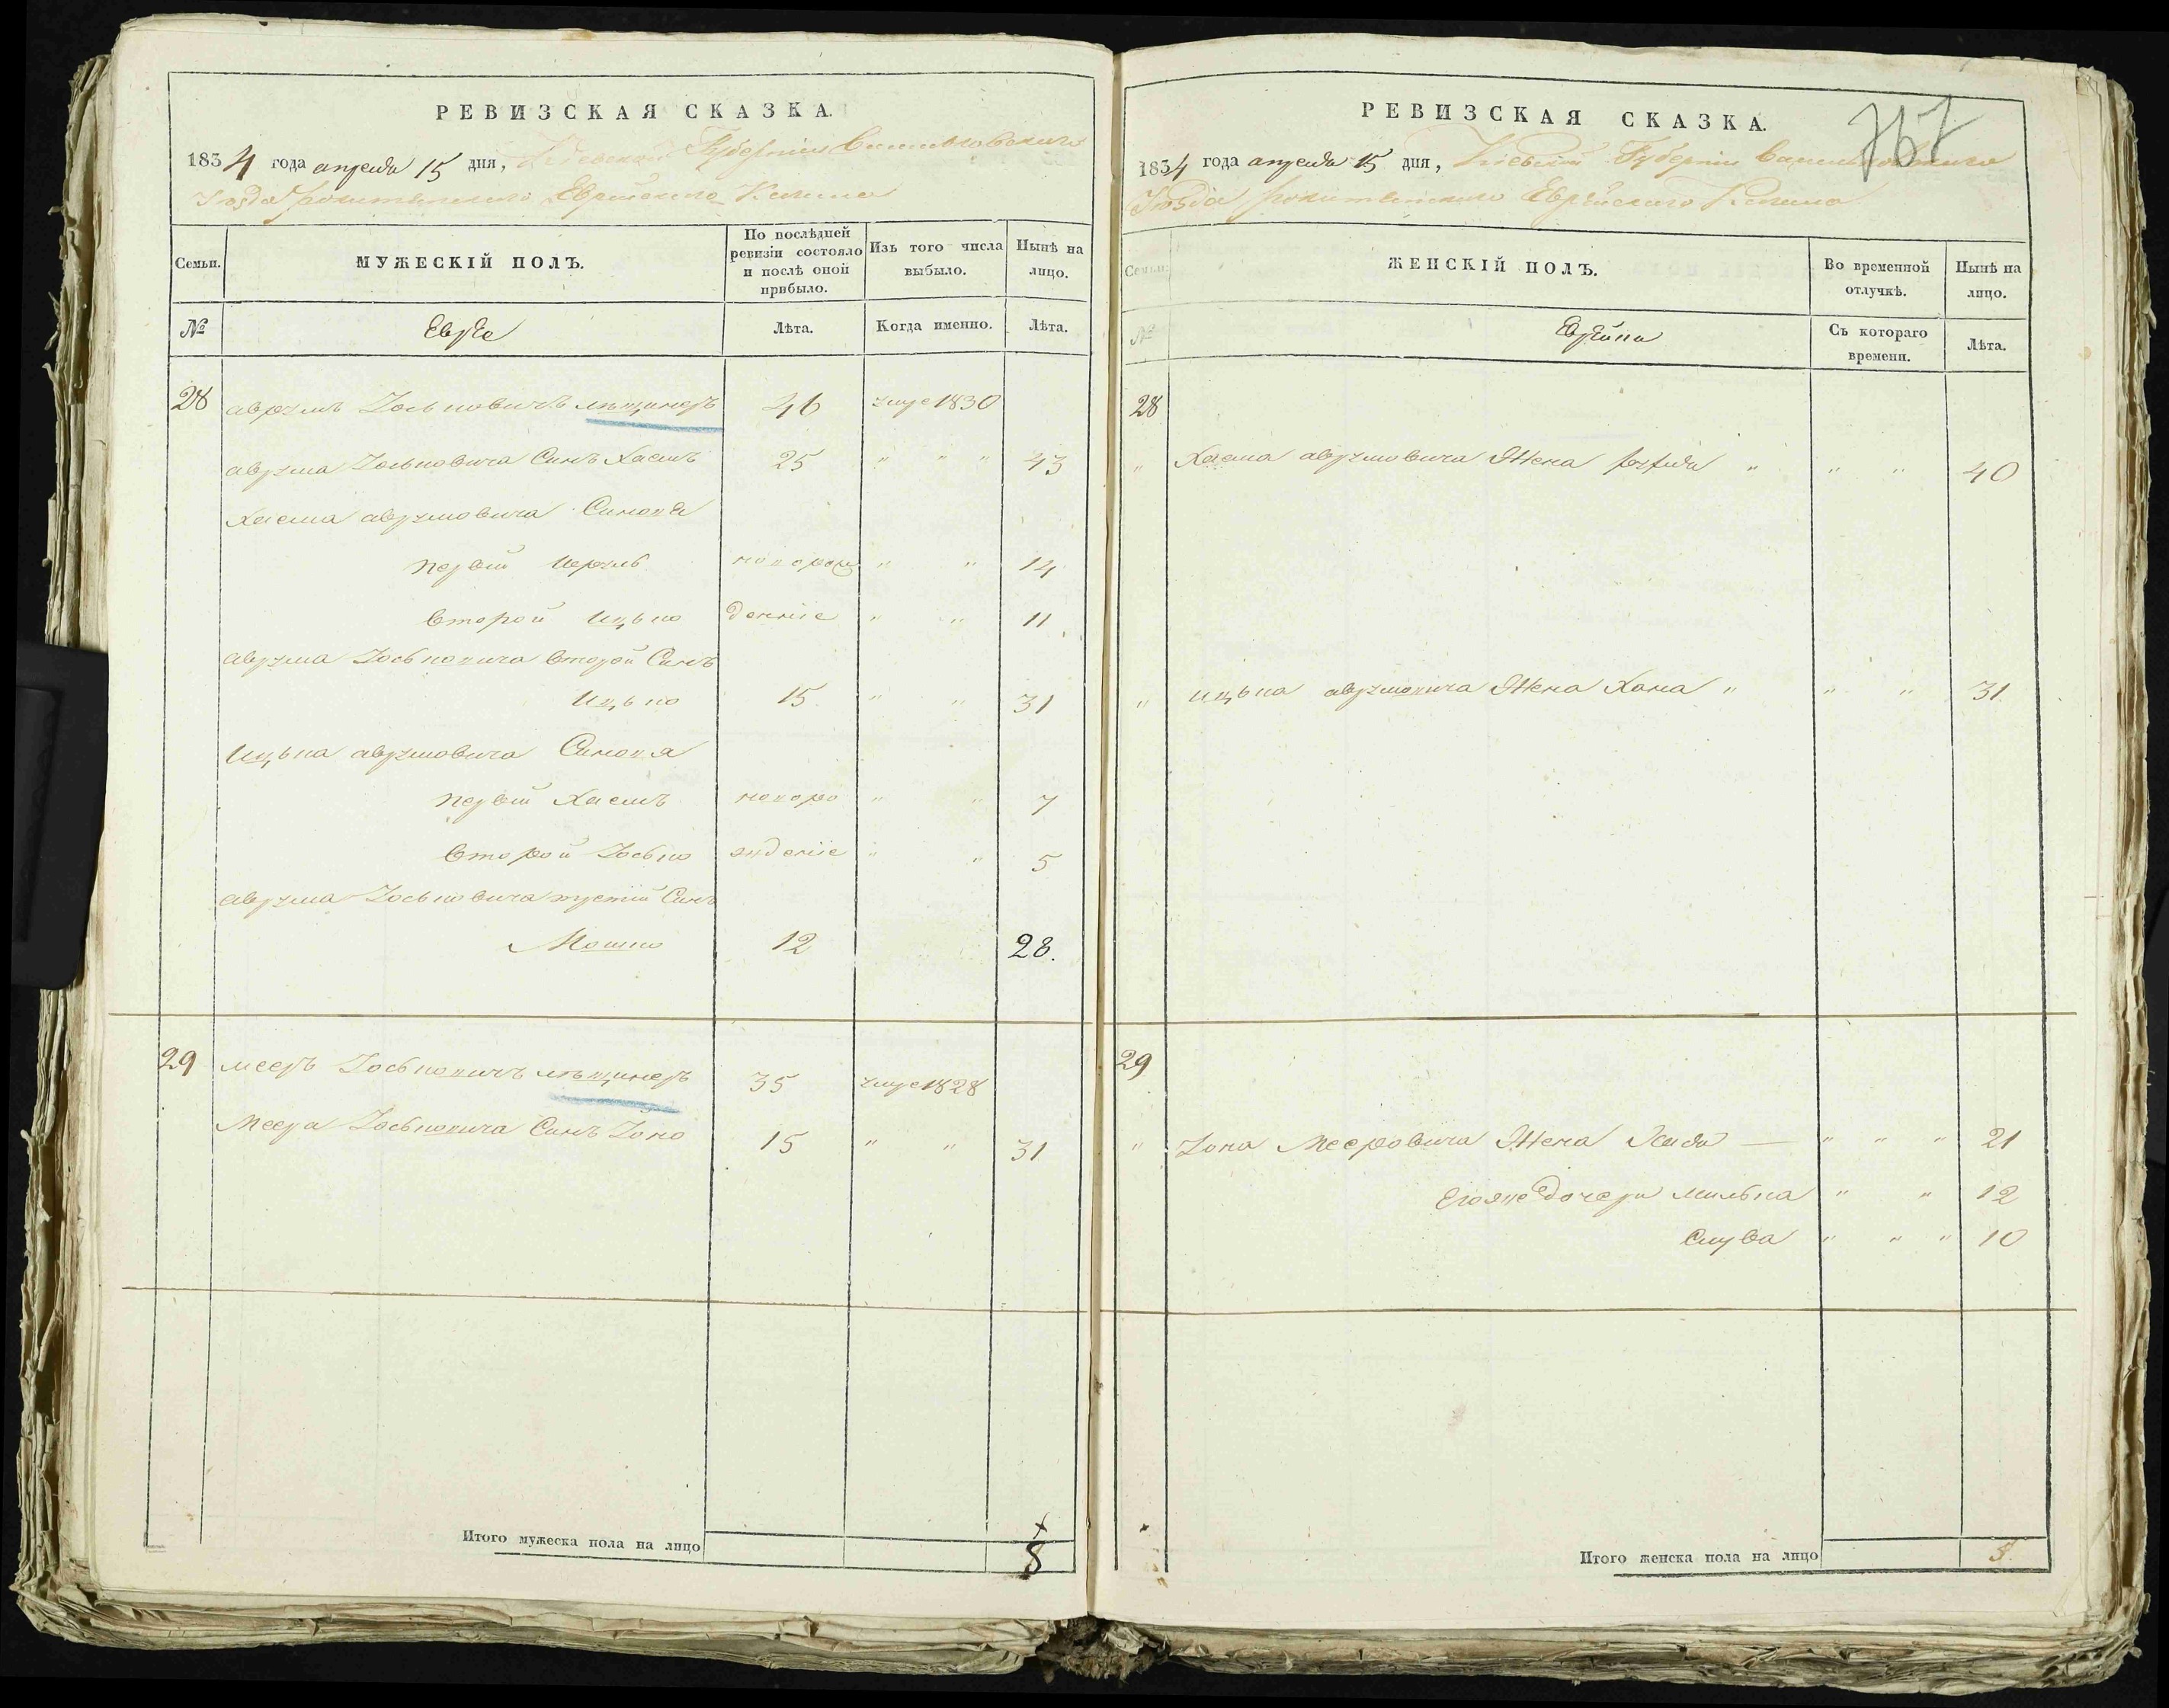 РЕВИЗСКАЯ СКАЗКА.
1834 года апреля 15 дня, Кіевской Губерніи Васильковского
Уѣзда Рокитянского Еврейского Кагала
Семьи.
МУЖЕСКІЙ ПОЛЪ.
По послѣдней ревизіи состояло и послѣ оной прибыло.
Изъ того числа выбыло.
Нынѣ на лицо.
№
Евреи
Лѣта.
Когда именно.
Лѣта.
28 Аврумъ Іосьповичъ 46 Умре 1830
Аврума Іосьповича Синъ Хаемъ 25 " " " 43
Хаема Аврумовича Синовя
Первий новорож " " 14
Второй Ицько денніе " " 11
Аврума Іосьповича Второй Синъ
Ицько 15 " " 31
Ицька Аврумовича Синовя
Первий Хаемъ новоро " " 7
Второй Іосько жденіе " " 5
Аврума Іосьповича третій Синъ
Мошко 12 28.
29 Мееръ Іосьповичъ 35 Умре 1828
Меера Іосьповича Синъ Іоно 15 " " 31
Итого мужеска пола на лицо 8
РЕВИЗСКАЯ СКАЗКА.
767
1834 года апреля 15 дня, Кіевской Губерніи Васильковского
Уѣзда Рокитянского Еврейского Кагала
Семьи.
ЖЕНСКІЙ ПОЛЪ.
Во временной отлучкѣ.
Нынѣ на лицо.
№
Еврейки
Съ котораго времени.
Лѣта.
28
" Хаема Аврумовича Жена " " " 40
" Ицька Аврумовича Жена Хана " " " 31
29
" Іона Мееровича Жена — " " " 21
Егоже Дочери Милька " " 12
Слува " " " 10
Итого женска пола на лицо 5.